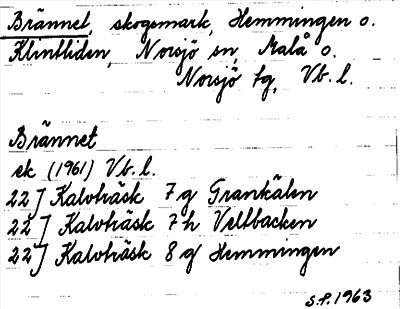 Brännet, skogsmark, Hemmingen o.
Klintliden, Norsjö sn, Malå o.
Norsjö tg, Vb. l.
Brännet
ek (1961) Vb. l.
22 J Kalvträsk 7 g Grankälen
22 J Kalvträsk 7 h Veltbacken
22 J Kalvträsk 8 g Hemmingen
S.P. 1963